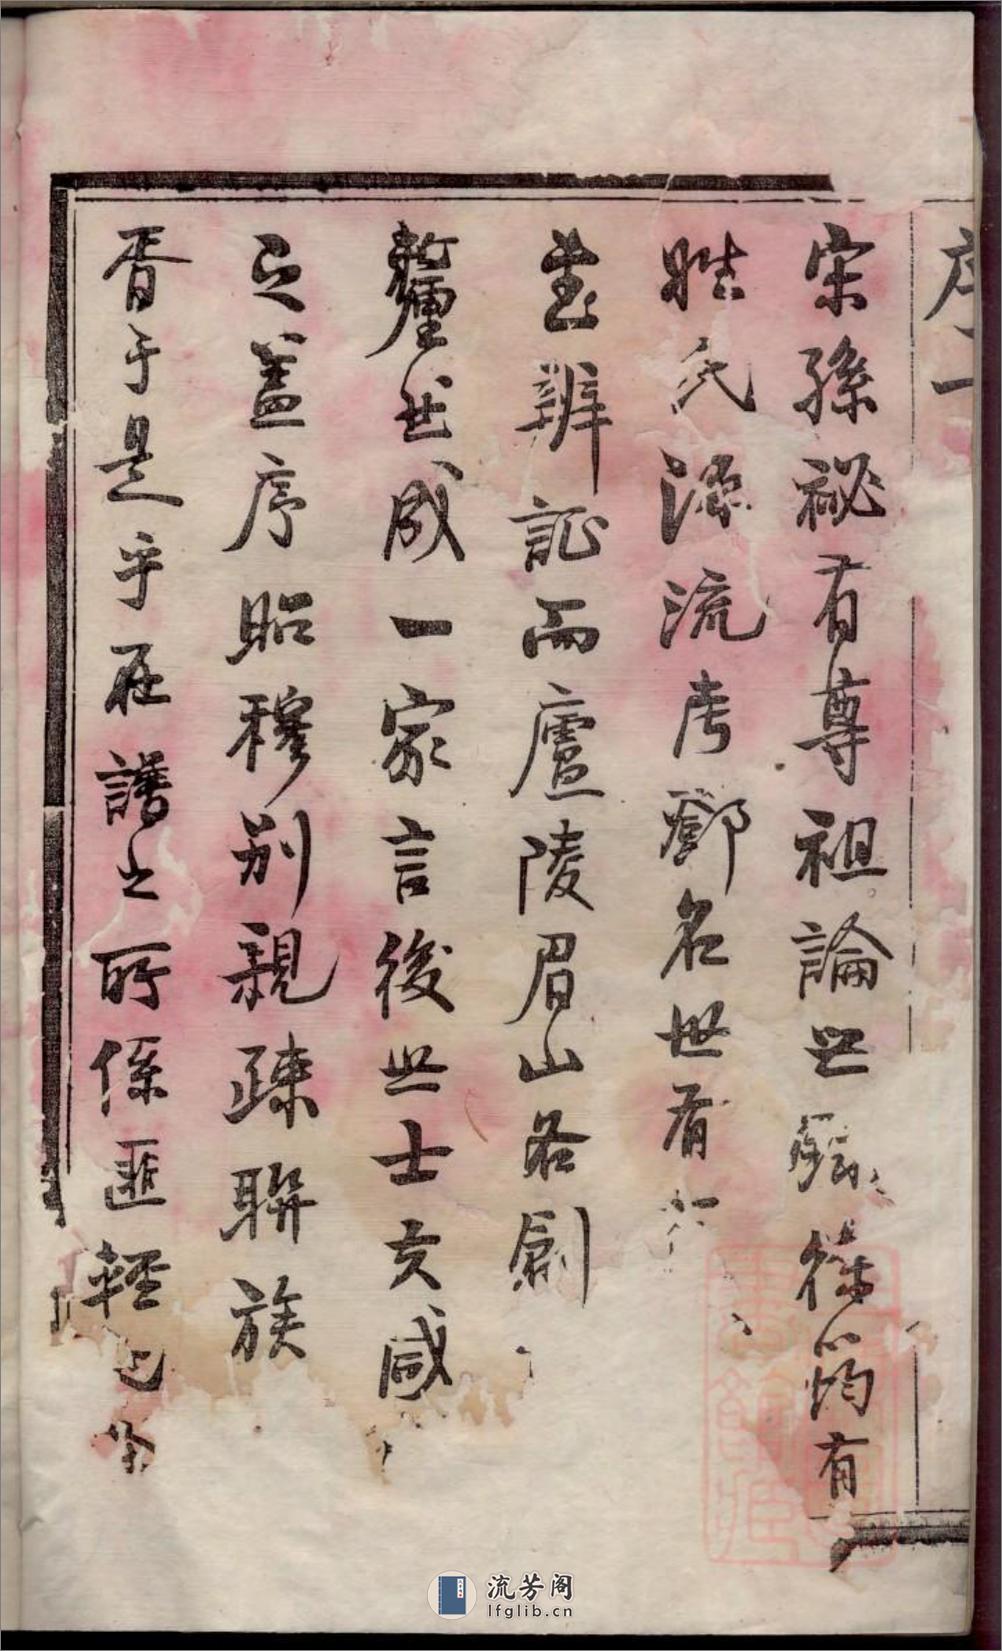 序一
宋孫祕有尊祖論世録徐筠有
姓氏源流考鄧名世有
書辨証而廬陵眉山各創
釐世成一家言後世士夫咸
之蓋序昭穆別親疎聯族
胥于是乎在譜之所係匪輕也
流芳阁
lfglib.cn